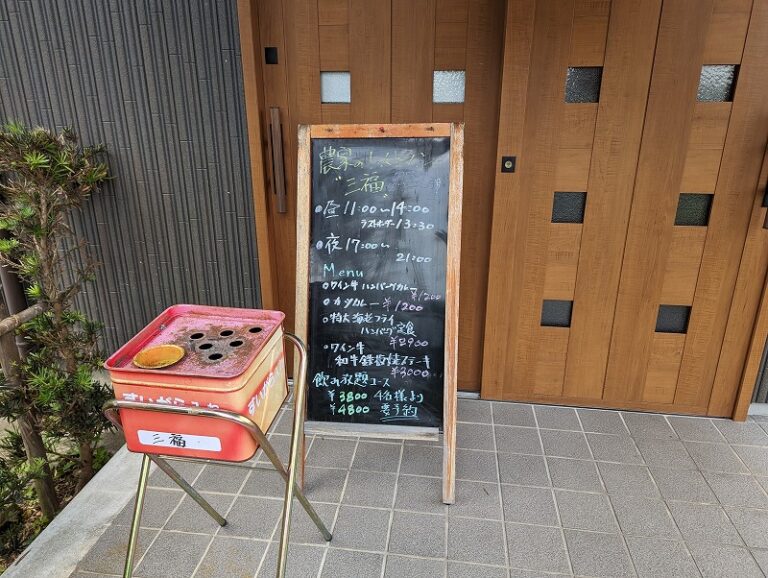 農家のキッチン
"三福"
●昼 11:00〜14:00
ラストオーダー 13:30
●夜 17:00〜
21:00
Menu
○ワイン牛 ハンバーグカレー
¥1200
○カツカレー ¥1200
○特大海老フライ
ハンバーグ定食
¥2900
○ワイン牛
和牛鉄板焼ステーキ
¥3000
飲み放題コース
¥3800 4名様より
¥4800 要予約
すいがら入れ
三福